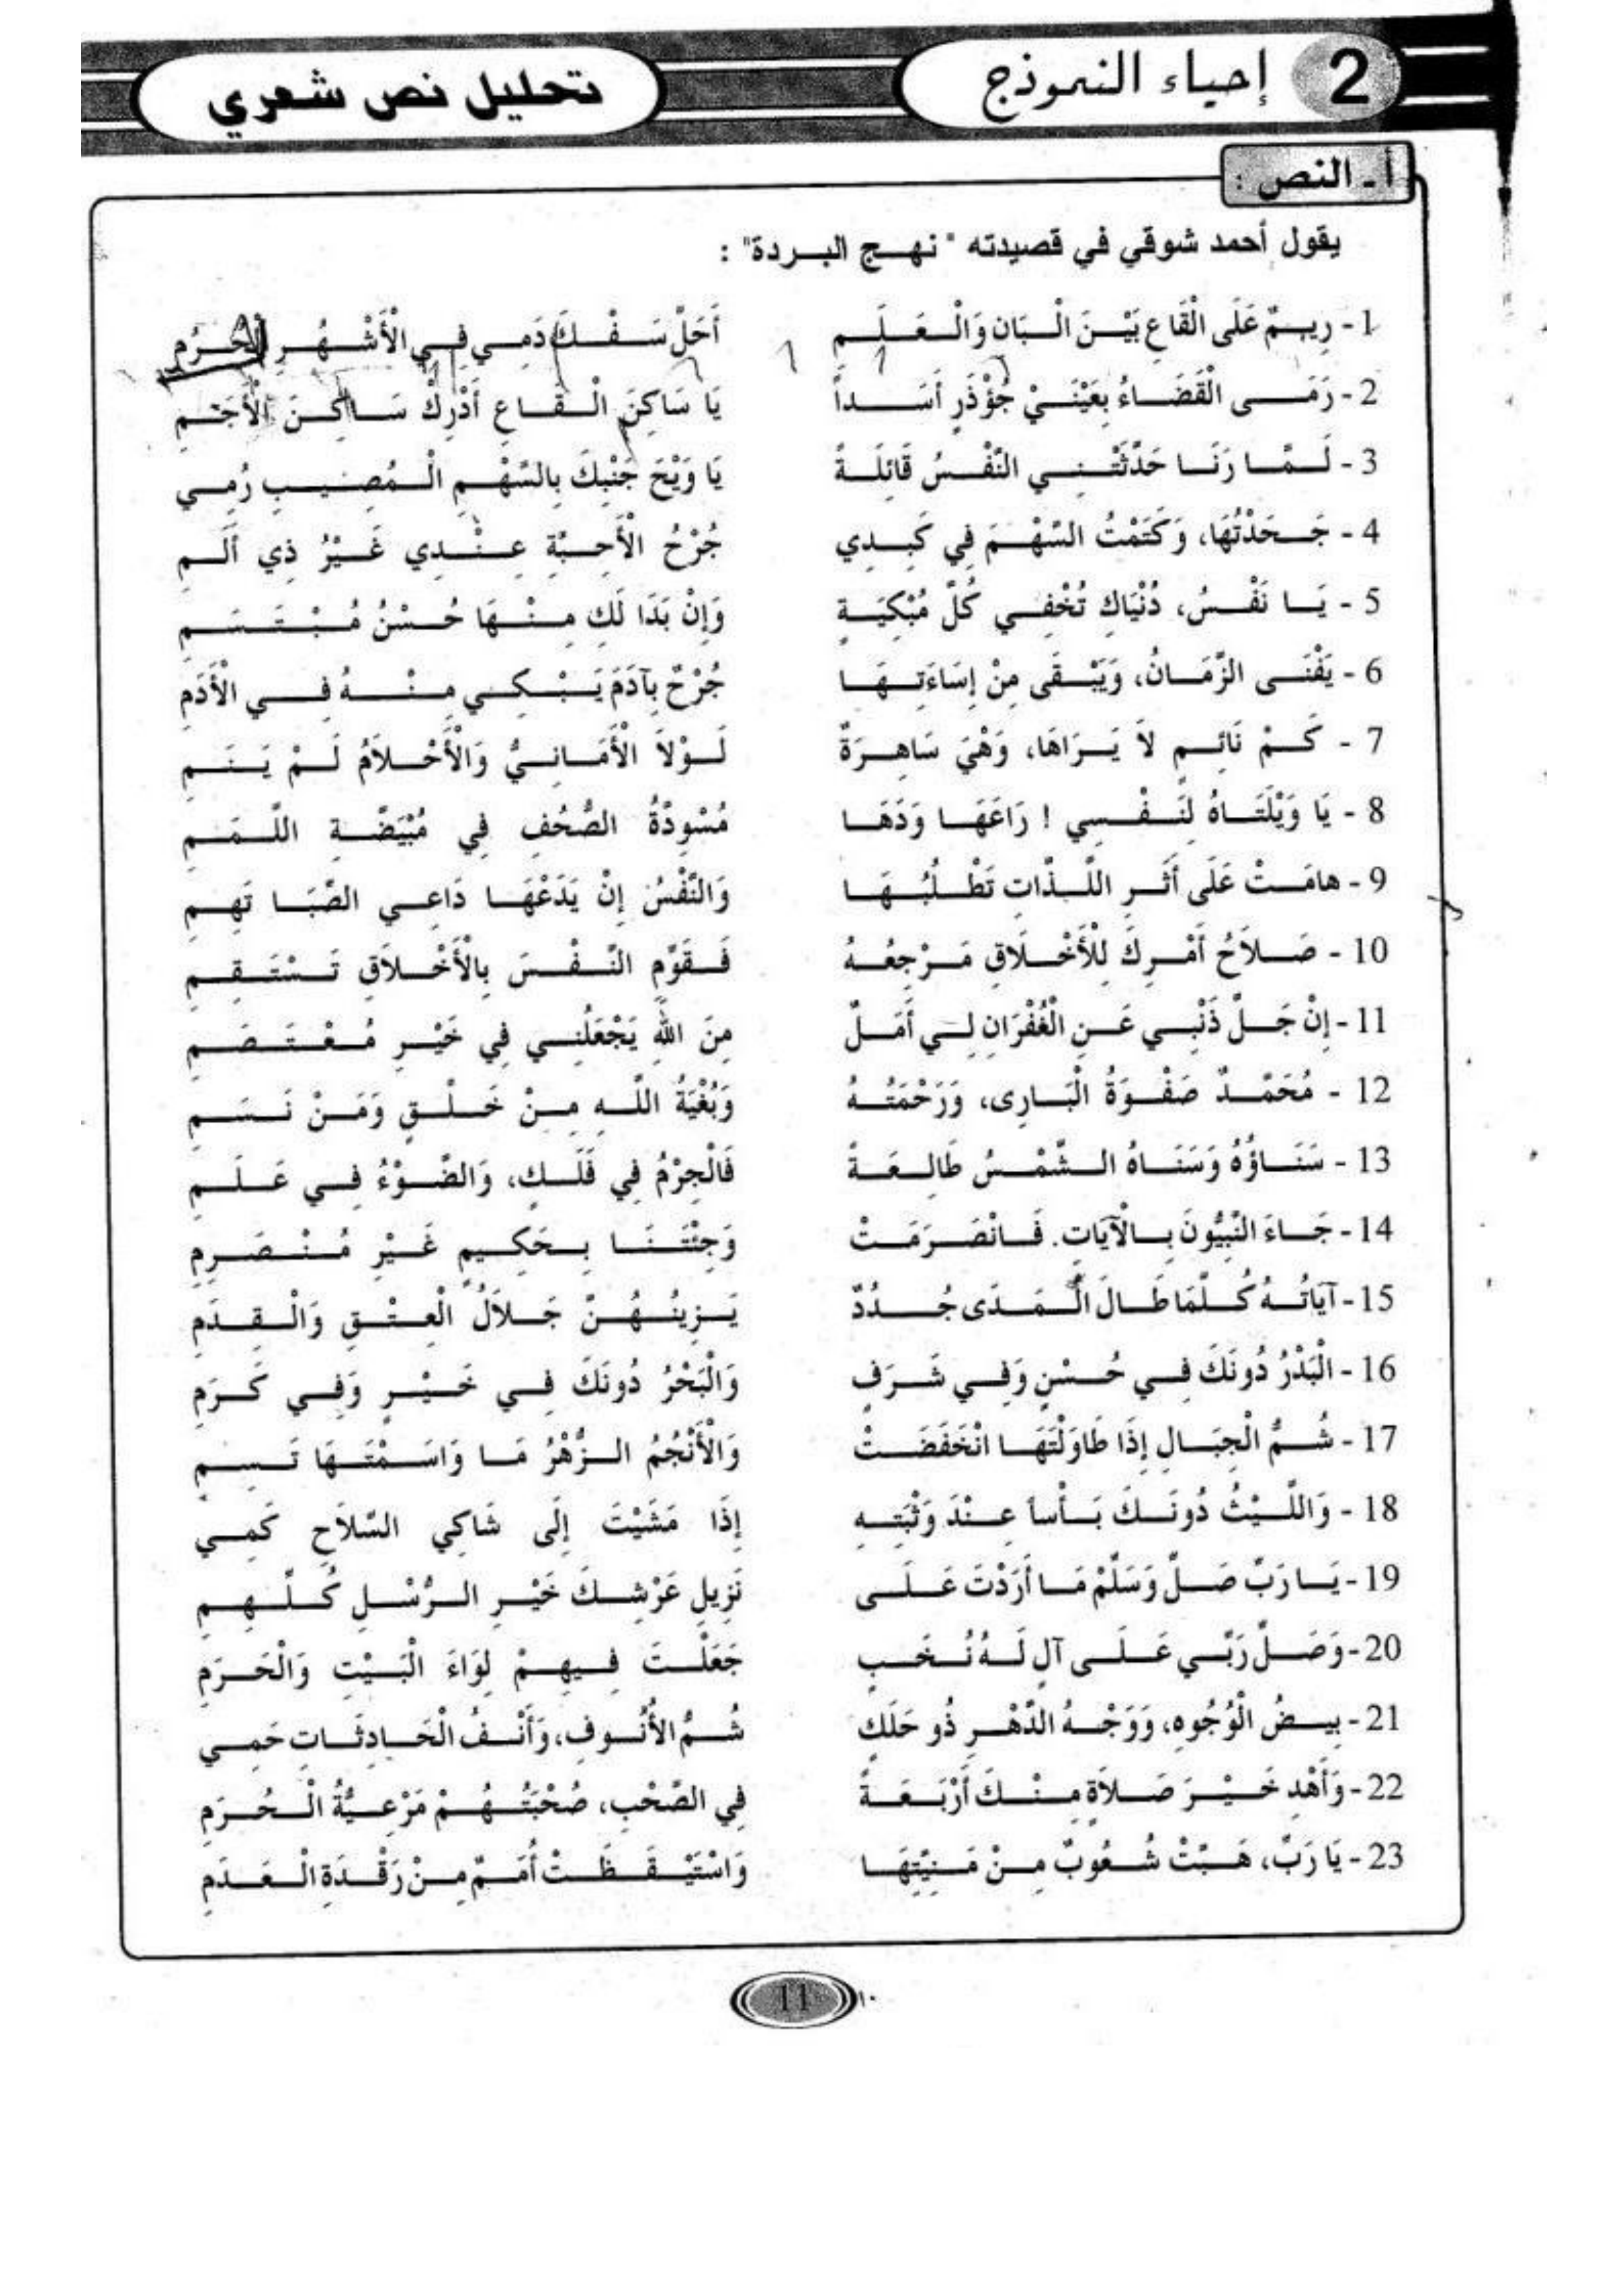 2 إحياء النموذج تحليل نص شعري
أ - النص :
يقول أحمد شوقي في قصيدته "نهج البردة" :
1 - رِيمٌ عَلَى الْقَاعِ بَيْنَ الْبَانِ وَالْعَلَمِ أَحَلَّ سَفْكَ دَمِي فِي الْأَشْهُرِ الْحُرُمِ
2 - رَمَى الْقَضَاءُ بِعَيْنَيْ جُؤْذَرٍ أَسَداً يَا سَاكِنَ الْقَاعِ أَدْرِكْ سَاكِنَ الْأَجَمِ
3 - لَمَّا رَنَا حَدَّثَتْنِي النَّفْسُ قَائِلَةً يَا وَيْحَ جَنْبِكَ بِالسَّهْمِ الْمُصِيبِ رُمِي
4 - جَحَدْتُهَا، وَكَتَمْتُ السَّهْمَ فِي كَبِدِي جُرْحُ الْأَحِبَّةِ عِنْدِي غَيْرُ ذِي أَلَمِ
5 - يَا نَفْسُ، دُنْيَاكِ تُخْفِي كُلَّ مُبْكِيَةٍ وَإِنْ بَدَا لَكِ مِنْهَا حُسْنُ مُبْتَسَمِ
6 - يَفْنَى الزَّمَانُ، وَيَبْقَى مِنْ إِسَاءَتِهَا جُرْحٌ بِآدَمَ يَبْكِي مِنْهُ فِي الْأَدَمِ
7 - كَمْ نَائِمٍ لاَ يَرَاهَا، وَهْيَ سَاهِرَةٌ لَوْلاَ الْأَمَانِيُّ وَالْأَحْلاَمُ لَمْ يَنَمِ
8 - يَا وَيْلَتَاهُ لِنَفْسِي ! رَاعَهَا وَدَهَا مُسْوِدَّةُ الصُّحُفِ فِي مُبْيَضَّةِ اللَّمَمِ
9 - هامَتْ عَلَى أَثَرِ اللَّذَّاتِ تَطْلُبُهَا وَالنَّفْسُ إِنْ يَدْعُهَا دَاعِي الصِّبَا تَهِمِ
10 - صَلاَحُ أَمْرِكَ لِلْأَخْلَاقِ مَرْجِعُهُ فَقَوِّمِ النَّفْسَ بِالْأَخْلاَقِ تَسْتَقِمِ
11 - إِنْ جَلَّ ذَنْبِي عَنِ الْغُفْرَانِ لِي أَمَلٌ مِنَ اللهِ يَجْعَلُنِي فِي خَيْرِ مُعْتَصَمِ
12 - مُحَمَّدٌ صَفْوَةُ الْبَارِى، وَرَحْمَتُهُ وَبُغْيَةُ اللَّهِ مِنْ خَلْقٍ وَمَنْ نَسَمِ
13 - سَنَاؤُهُ وَسَنَاهُ الشَّمْسُ طَالِعَةً فَالْجِرْمُ فِي فَلَكٍ، وَالضَّوْءُ فِي عَلَمِ
14 - جَاءَ النَّبِيُّونَ بِالْآيَاتِ. فَانْصَرَمَتْ وَجِئْتَنَا بِحَكِيمٍ غَيْرِ مُنْصَرِمِ
15 - آيَاتُهُ كُلَّمَا طَالَ الْمَدَى جُدُدٌ يَزِينُهُنَّ جَلاَلُ الْعِتْقِ وَالْقِدَمِ
16 - الْبَدْرُ دُونَكَ فِي حُسْنٍ وَفِي شَرَفٍ وَالْبَحْرُ دُونَكَ فِي خَيْرٍ وَفِي كَرَمِ
17 - شُمُّ الْجِبَالِ إِذَا طَاوَلْتَهَا انْخَفَضَتْ وَالْأَنْجُمُ الزُّهْرُ مَا وَاسَمْتَهَا تَسِمِ
18 - وَاللَّيْثُ دُونَكَ بَأْساً عِنْدَ وَثْبَتِهِ إِذَا مَشَيْتَ إِلَى شَاكِي السِّلاَحِ كَمِي
19 - يَا رَبِّ صَلِّ وَسَلِّمْ مَا أَرَدْتَ عَلَى نَزِيلِ عَرْشِكَ خَيْرِ الرُّسْلِ كُلِّهِمِ
20 - وَصَلِّ رَبِّي عَلَى آلٍ لَهُ نُخَبٍ جَعَلْتَ فِيهِمْ لِوَاءَ الْبَيْتِ وَالْحَرَمِ
21 - بِيضُ الْوُجُوهِ، وَوَجْهُ الدَّهْرِ ذُو حَلَكٍ شُمُّ الْأُنُوفِ، وَأَنْفُ الْحَادِثَاتِ حَمِي
22 - وَأَهْدِ خَيْرَ صَلاَةٍ مِنْكَ أَرْبَعَةً فِي الصَّحْبِ، صُحْبَتُهُمْ مَرْعِيَّةُ الْحُرَمِ
23 - يَا رَبِّ، هَبَّتْ شُعُوبٌ مِنْ مَنِيَّتِهَا وَاسْتَيْقَظَتْ أُمَمٌ مِنْ رَقْدَةِ الْعَدَمِ
11